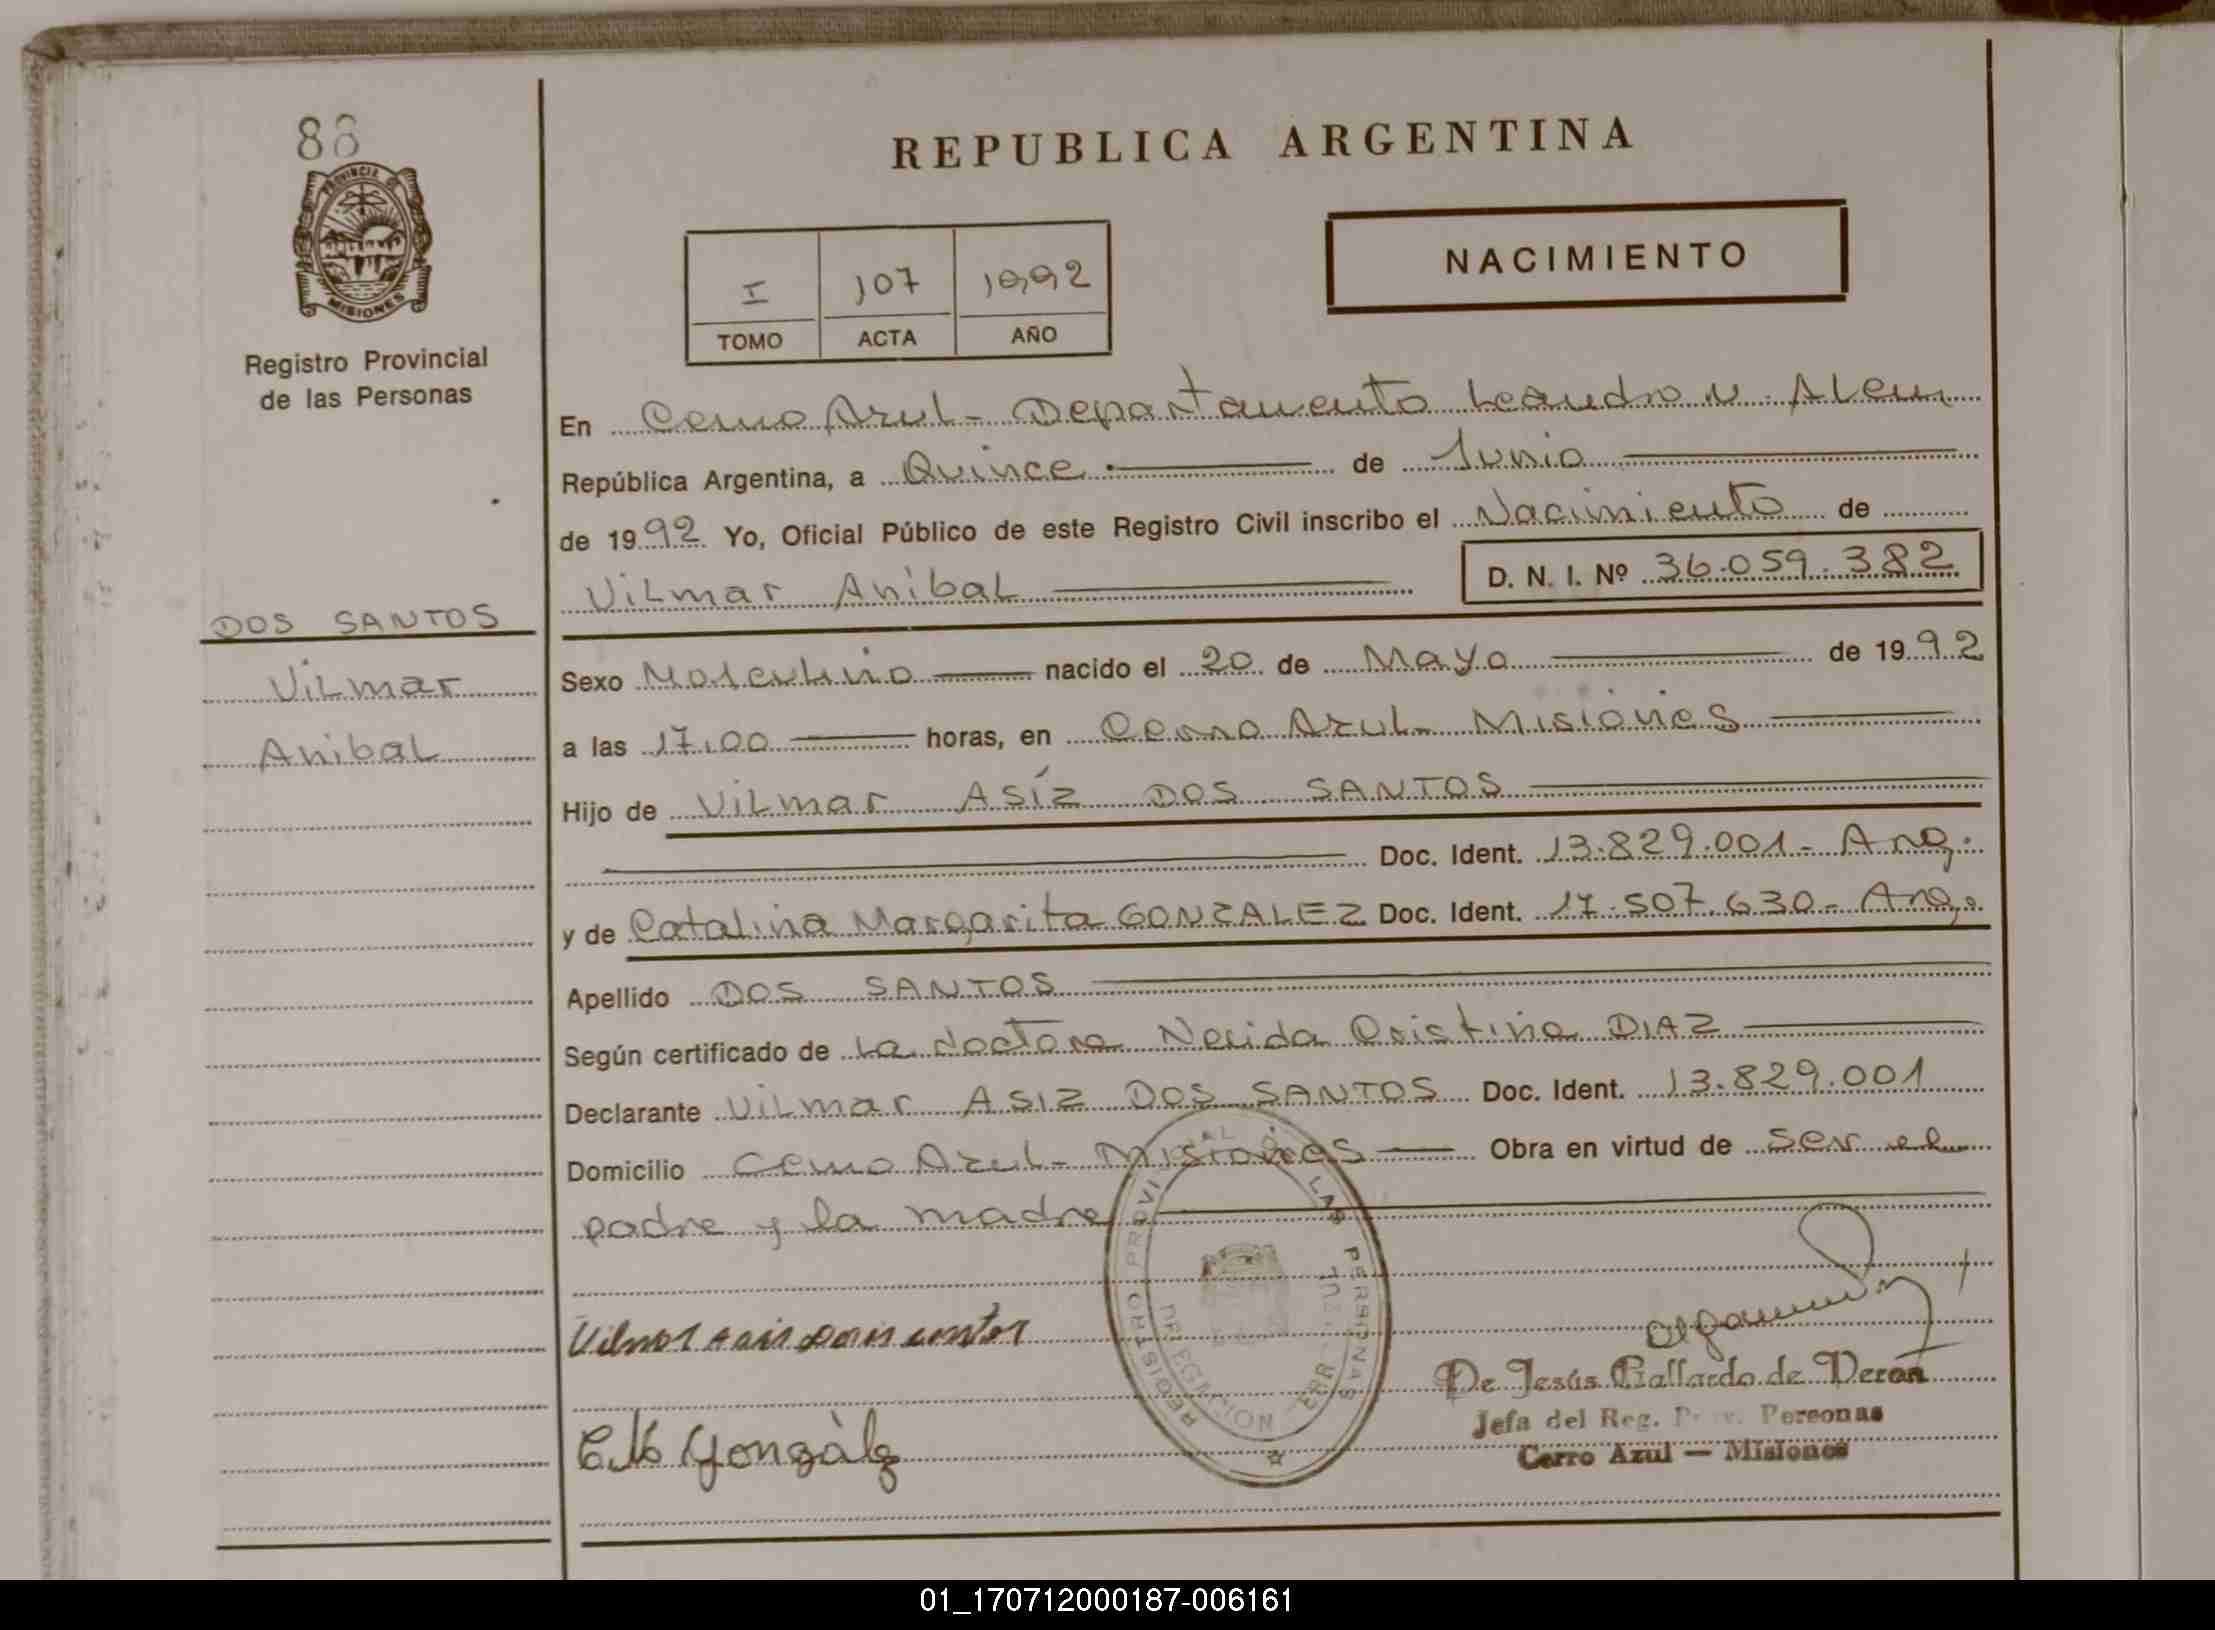 88
PROVINCIA DE
MISIONES
Registro Provincial
de las Personas
DOS SANTOS
Vilmar
Anibal
REPUBLICA ARGENTINA
I 107 1992
TOMO ACTA AÑO
NACIMIENTO
En Cerro Azul - Departamento Leandro N. Alem
República Argentina, a Quince de Junio
de 1992 Yo, Oficial Público de este Registro Civil inscribo el Nacimiento de
Vilmar Anibal D. N. I. Nº 36.059.382
Sexo Masculino nacido el 20 de Mayo de 1992
a las 17,00 horas, en Cerro Azul - Misiones
Hijo de Vilmar Asíz DOS SANTOS
Doc. Ident. 13.829.001 - Arg.
y de Catalina Margarita GONZALEZ Doc. Ident. 17.507.630 - Arg.
Apellido DOS SANTOS
Según certificado de la doctora Nerida Cristina DIAZ
Declarante Vilmar Asiz DOS SANTOS Doc. Ident. 13.829.001
Domicilio Cerro Azul - Misiones Obra en virtud de ser el
padre y la madre
REGISTRO PROVINCIAL LAS PERSONAS
DELEGACION CERRO AZUL
C.M. Gonzàlez
De Jesús Gallardo de Veron
Jefa del Reg. Prov. Personas
Cerro Azul — Misiones
01_170712000187-006161